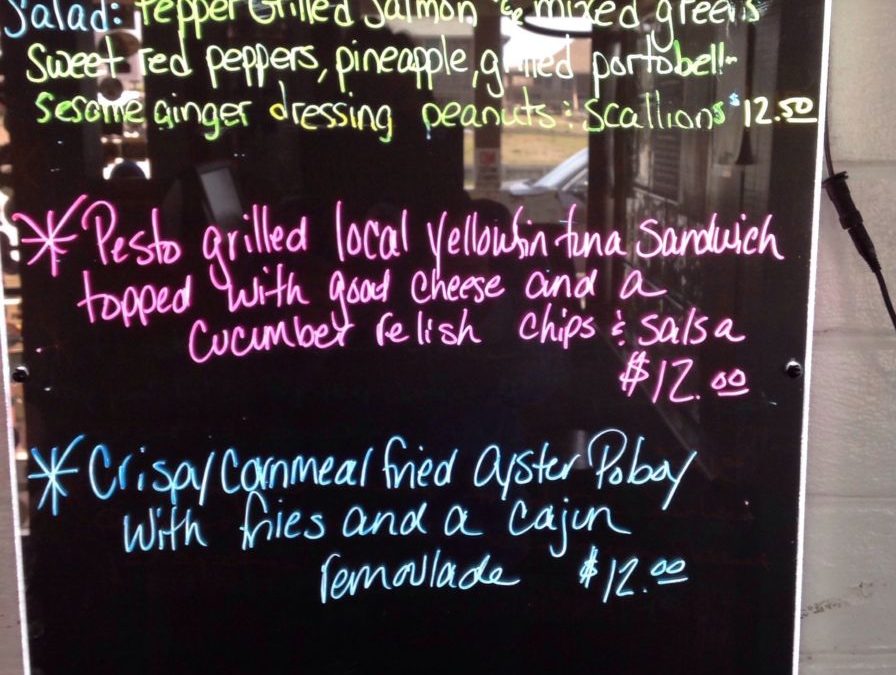 Salad: Pepper Grilled Salmon mixed greens
Sweet red peppers, pineapple, grilled portobello
Sesame ginger dressing peanuts & scallions $12.50
* Pesto grilled local yellowfin tuna sandwich
topped with good cheese and a
cucumber relish chips & salsa
$12.00
* Crispy Cornmeal fried oyster Poboy
with fries and a cajun
remoulade $12.00